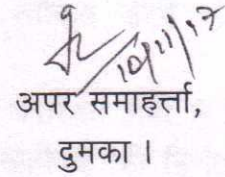 10/11/17
अपर समाहर्त्ता,
दुमका ।